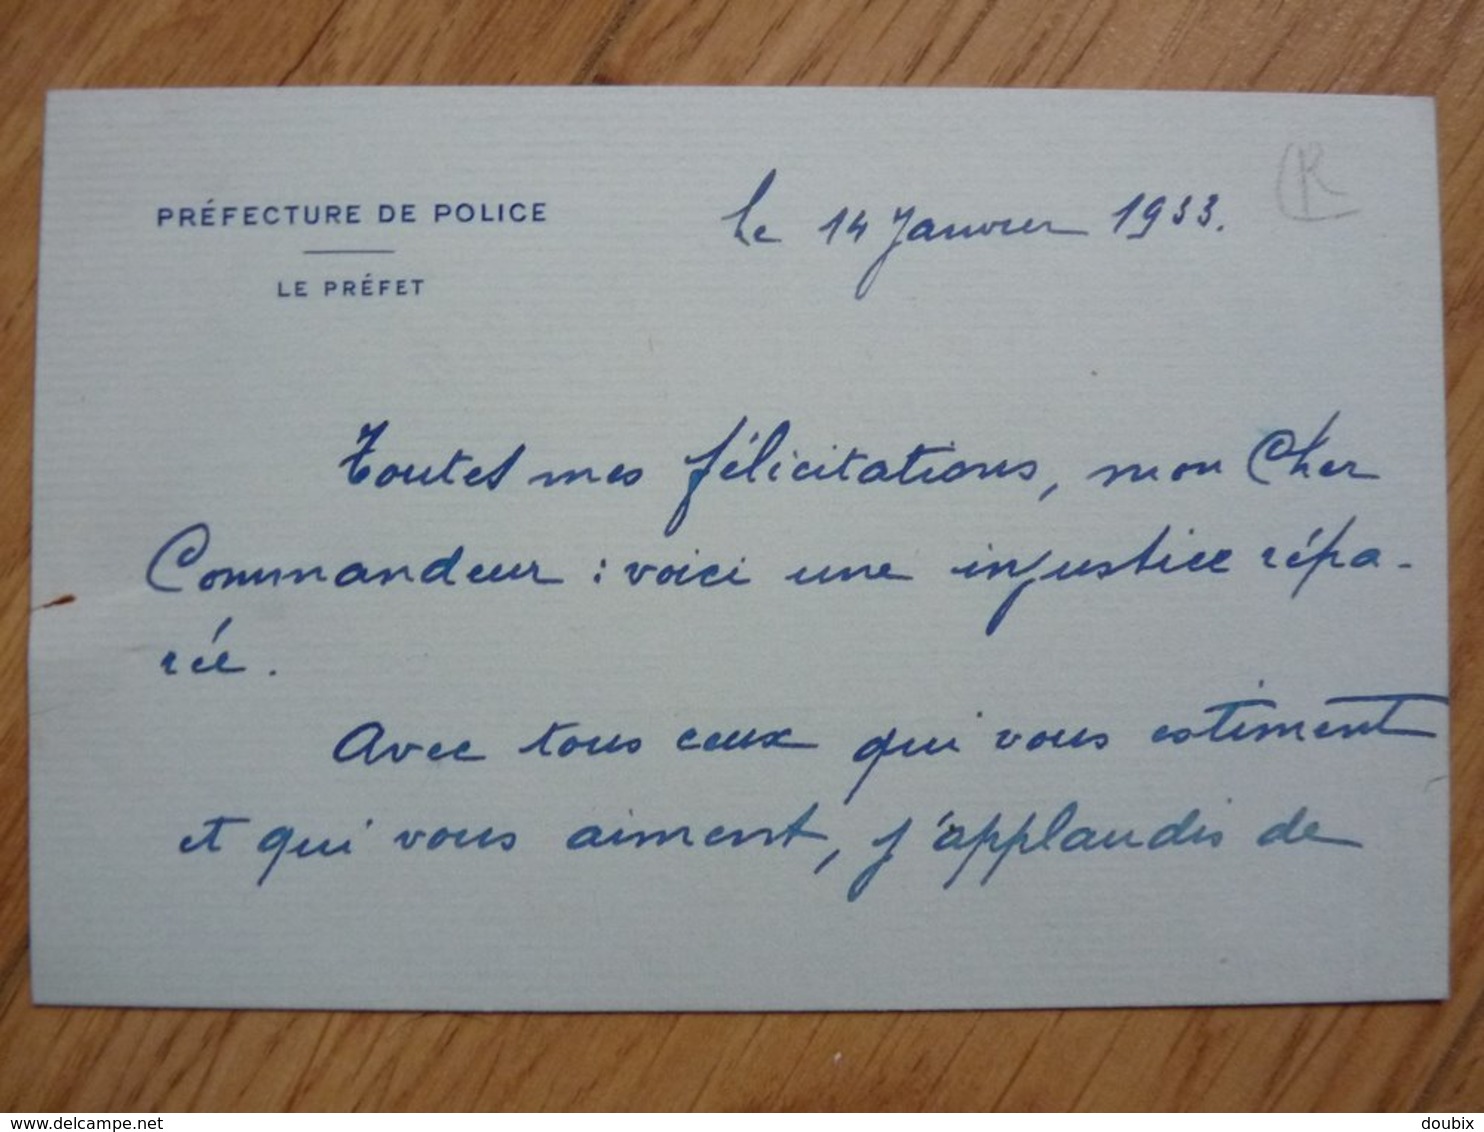 PRÉFECTURE DE POLICE
LE PRÉFET
le 14 Janvier 1933.
R
Toutes mes félicitations, mon Cher
Commandeur : voici une injustice répa-
rée.
Avec tous ceux qui vous estiment
et qui vous aiment, j'applaudis de
www.delcampe.net
doubix